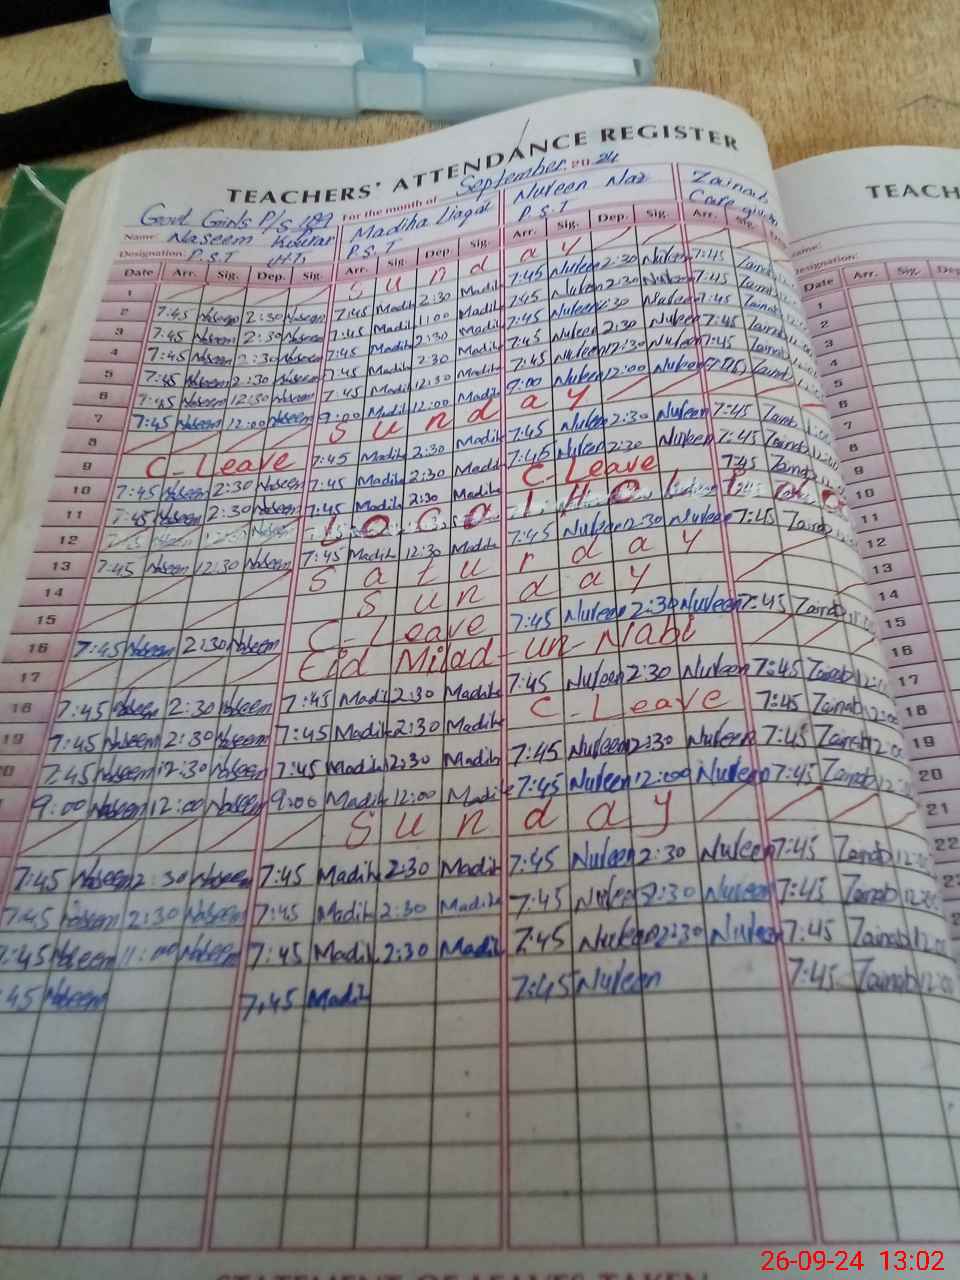 TEACHERS' ATTENDANCE REGISTER
TEACH
For the month of September 20 24
Govt Girls P/S
Name: Naseem Madiha Liaqat Nureen Naz Zainab
Designation: P.S.T H.T P.S.T P.S.T Care
Date Arr. Sig. Dep. Sig. Arr. Sig. Dep. Sig. Arr. Sig. Dep. Sig. Arr. Sig.
Designation:
Date Arr. Sig. De
1 S u n d a y
2 7:45 Naseem 2:30 Naseem 7:45 Madih 2:30 Madih 7:45 Nureen 2:30 Nureen 7:45 Zainab
3 7:45 Naseem 2:30 Naseem 7:45 Madih 1:00 Madih 7:45 Nureen 2:30 Nureen 7:45 Zainab
4 7:45 Naseem 2:30 Naseem 7:45 Madih 2:30 Madih 7:45 Nureen 2:30 Nureen 7:45 Zainab
5 7:45 Naseem 2:30 Naseem 7:45 Madih 2:30 Madih 7:45 Nureen 2:30 Nureen 7:45 Zainab
6 7:45 Naseem 12:30 Naseem 7:45 Madih 12:30 Madih 7:45 Nureen 12:30 Nureen 7:45 Zainab
7 7:45 Naseem 12:00 Naseem 9:00 Madih 12:00 Madih 9:00 Nureen 12:00 Nureen Zainab
8 S u n d a y
9 C-Leave 7:45 Madih 2:30 Madih 7:45 Nureen 2:30 Nureen 7:45 Zainab
10 7:45 Naseem 2:30 Naseem 7:45 Madih 2:30 Madih 7:45 Nureen 2:30 Nureen 7:45 Zainab
11 7:45 Naseem 2:30 Naseem 7:45 Madih 2:30 Madih C-Leave 7:45 Zainab
12 L o c a l H o l
13 7:45 Naseem 12:30 Naseem 7:45 Madih 12:30 Madih 7:45 Nureen 12:30 Nureen 7:45 Zainab
14 S a t u r d a y
15 S u n d a y
16 7:45 Naseem 2:30 Naseem C-Leave 7:45 Nureen 2:30 Nureen 7:45 Zainab
17 Eid Milad-un-Nabi
18 7:45 Naseem 2:30 Naseem 7:45 Madih 2:30 Madih 7:45 Nureen 2:30 Nureen 7:45 Zainab
19 7:45 Naseem 2:30 Naseem 7:45 Madih 2:30 Madih C-Leave 7:45 Zainab
20 7:45 Naseem 12:30 Naseem 7:45 Madih 12:30 Madih 7:45 Nureen 2:30 Nureen 7:45 Zainab
9:00 Naseem 12:00 Naseem 9:00 Madih 12:00 Madih 7:45 Nureen 12:00 Nureen 7:45 Zainab
S u n d a y
7:45 Naseem 2:30 Naseem 7:45 Madih 2:30 Madih 7:45 Nureen 2:30 Nureen 7:45 Zainab
7:45 Naseem 2:30 Naseem 7:45 Madih 2:30 Madih 7:45 Nureen 2:30 Nureen 7:45 Zainab
7:45 Naseem 11:00 Naseem 7:45 Madih 2:30 Madih 7:45 Nureen 2:30 Nureen 7:45 Zainab
:45 Naseem 7:45 Madih 7:45 Nureen 7:45 Zainab
1
2
3
4
5
6
7
8
9
10
11
12
13
14
15
16
17
18
19
20
21
22
STATEMENT OF LEAVES TAKEN
26-09-24 13:02